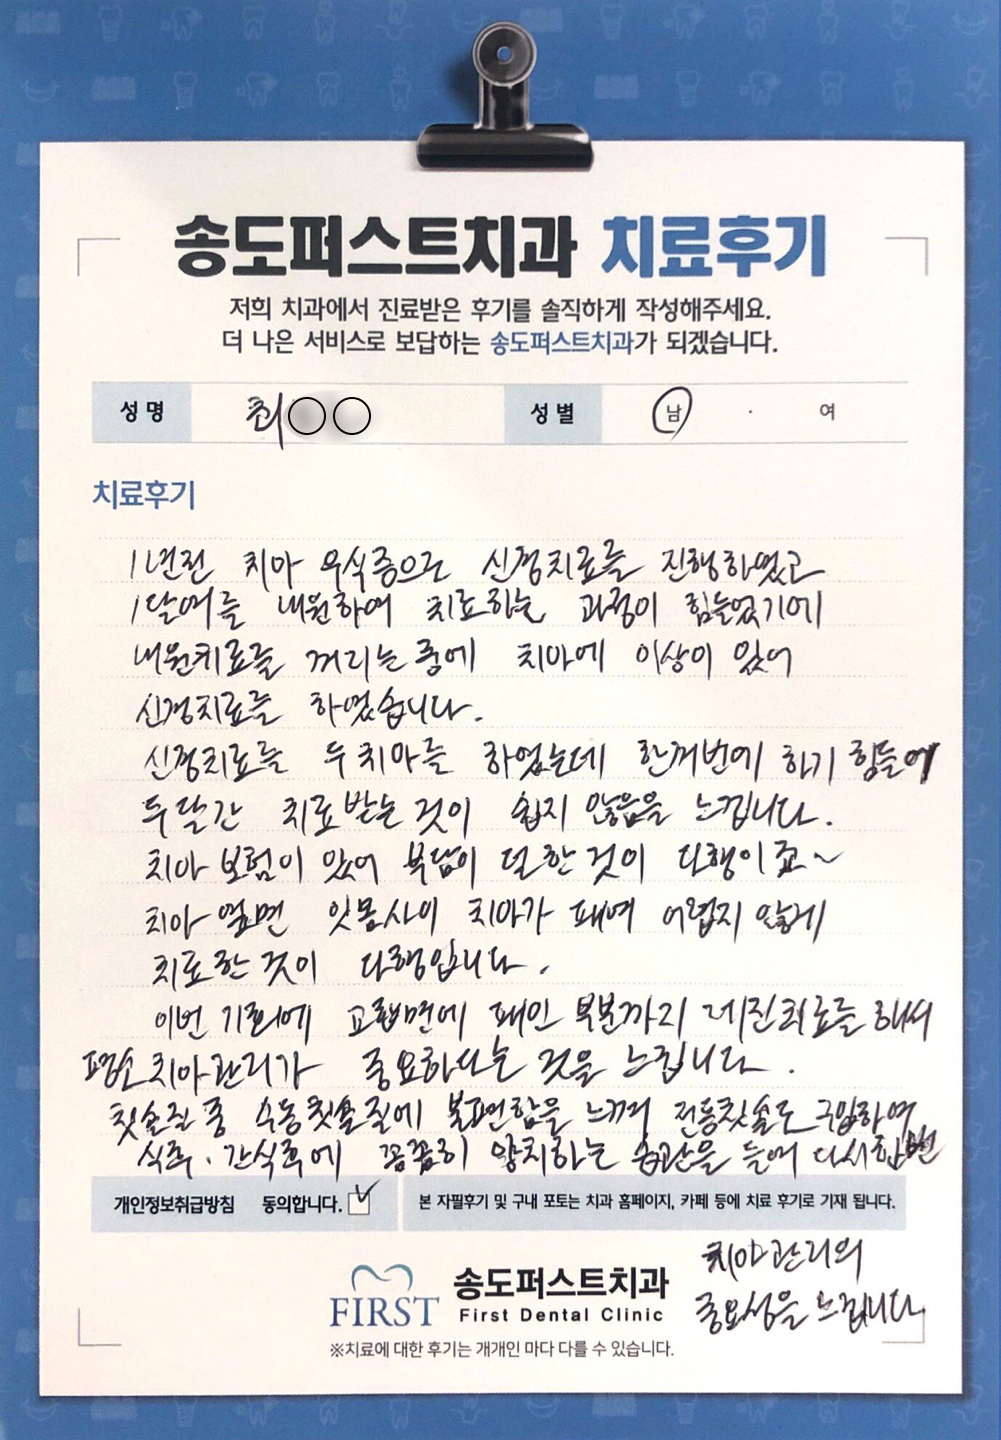 송도퍼스트치과 치료후기
저희 치과에서 진료받은 후기를 솔직하게 작성해주세요.
더 나은 서비스로 보답하는 송도퍼스트치과가 되겠습니다.
성명 최○○ 성별 남 · 여
치료후기
1년전 치아 우식증으로 신경치료를 진행하였고
1달여를 내원하여 치료하는 과정이 힘들었기에
내원치료를 꺼리는 중에 치아에 이상이 있어
신경치료를 하였습니다.
신경치료를 두 치아를 하였는데 한꺼번에 하기 힘들어
두달간 치료 받는 것이 쉽지 않음을 느낍니다.
치아 보험이 있어 부담이 덜 한 것이 다행이죠~
치아 옆면 잇몸사이 치아가 패여 어렵지 않게
치료한 것이 다행입니다.
이번 기회에 교합면에 패인 부분까지 레진치료를 해서
평소 치아관리가 중요하다는 것을 느낍니다.
칫솔질 중 수동칫솔질에 불편함을 느껴 전동칫솔도 구입하여
식후·간식후에 꼼꼼히 양치하는 습관을 들여 다시한번
개인정보취급방침 동의합니다.
본 자필후기 및 구내 포토는 치과 홈페이지, 카페 등에 치료 후기로 기재 됩니다.
치아관리의
중요성을 느낍니다.
FIRST 송도퍼스트치과
First Dental Clinic
※치료에 대한 후기는 개개인 마다 다를 수 있습니다.